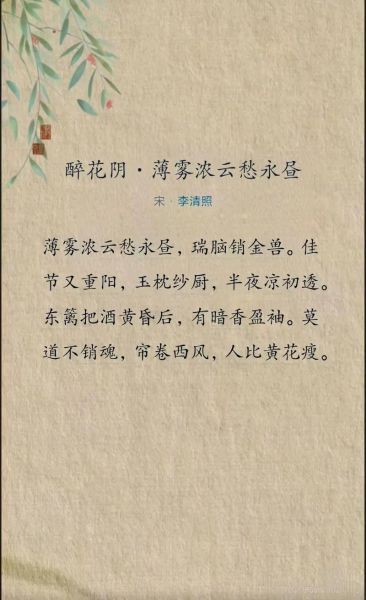 醉花阴·薄雾浓云愁永昼
宋·李清照
薄雾浓云愁永昼，瑞脑销金兽。佳
节又重阳，玉枕纱厨，半夜凉初透。
东篱把酒黄昏后，有暗香盈袖。莫
道不销魂，帘卷西风，人比黄花瘦。